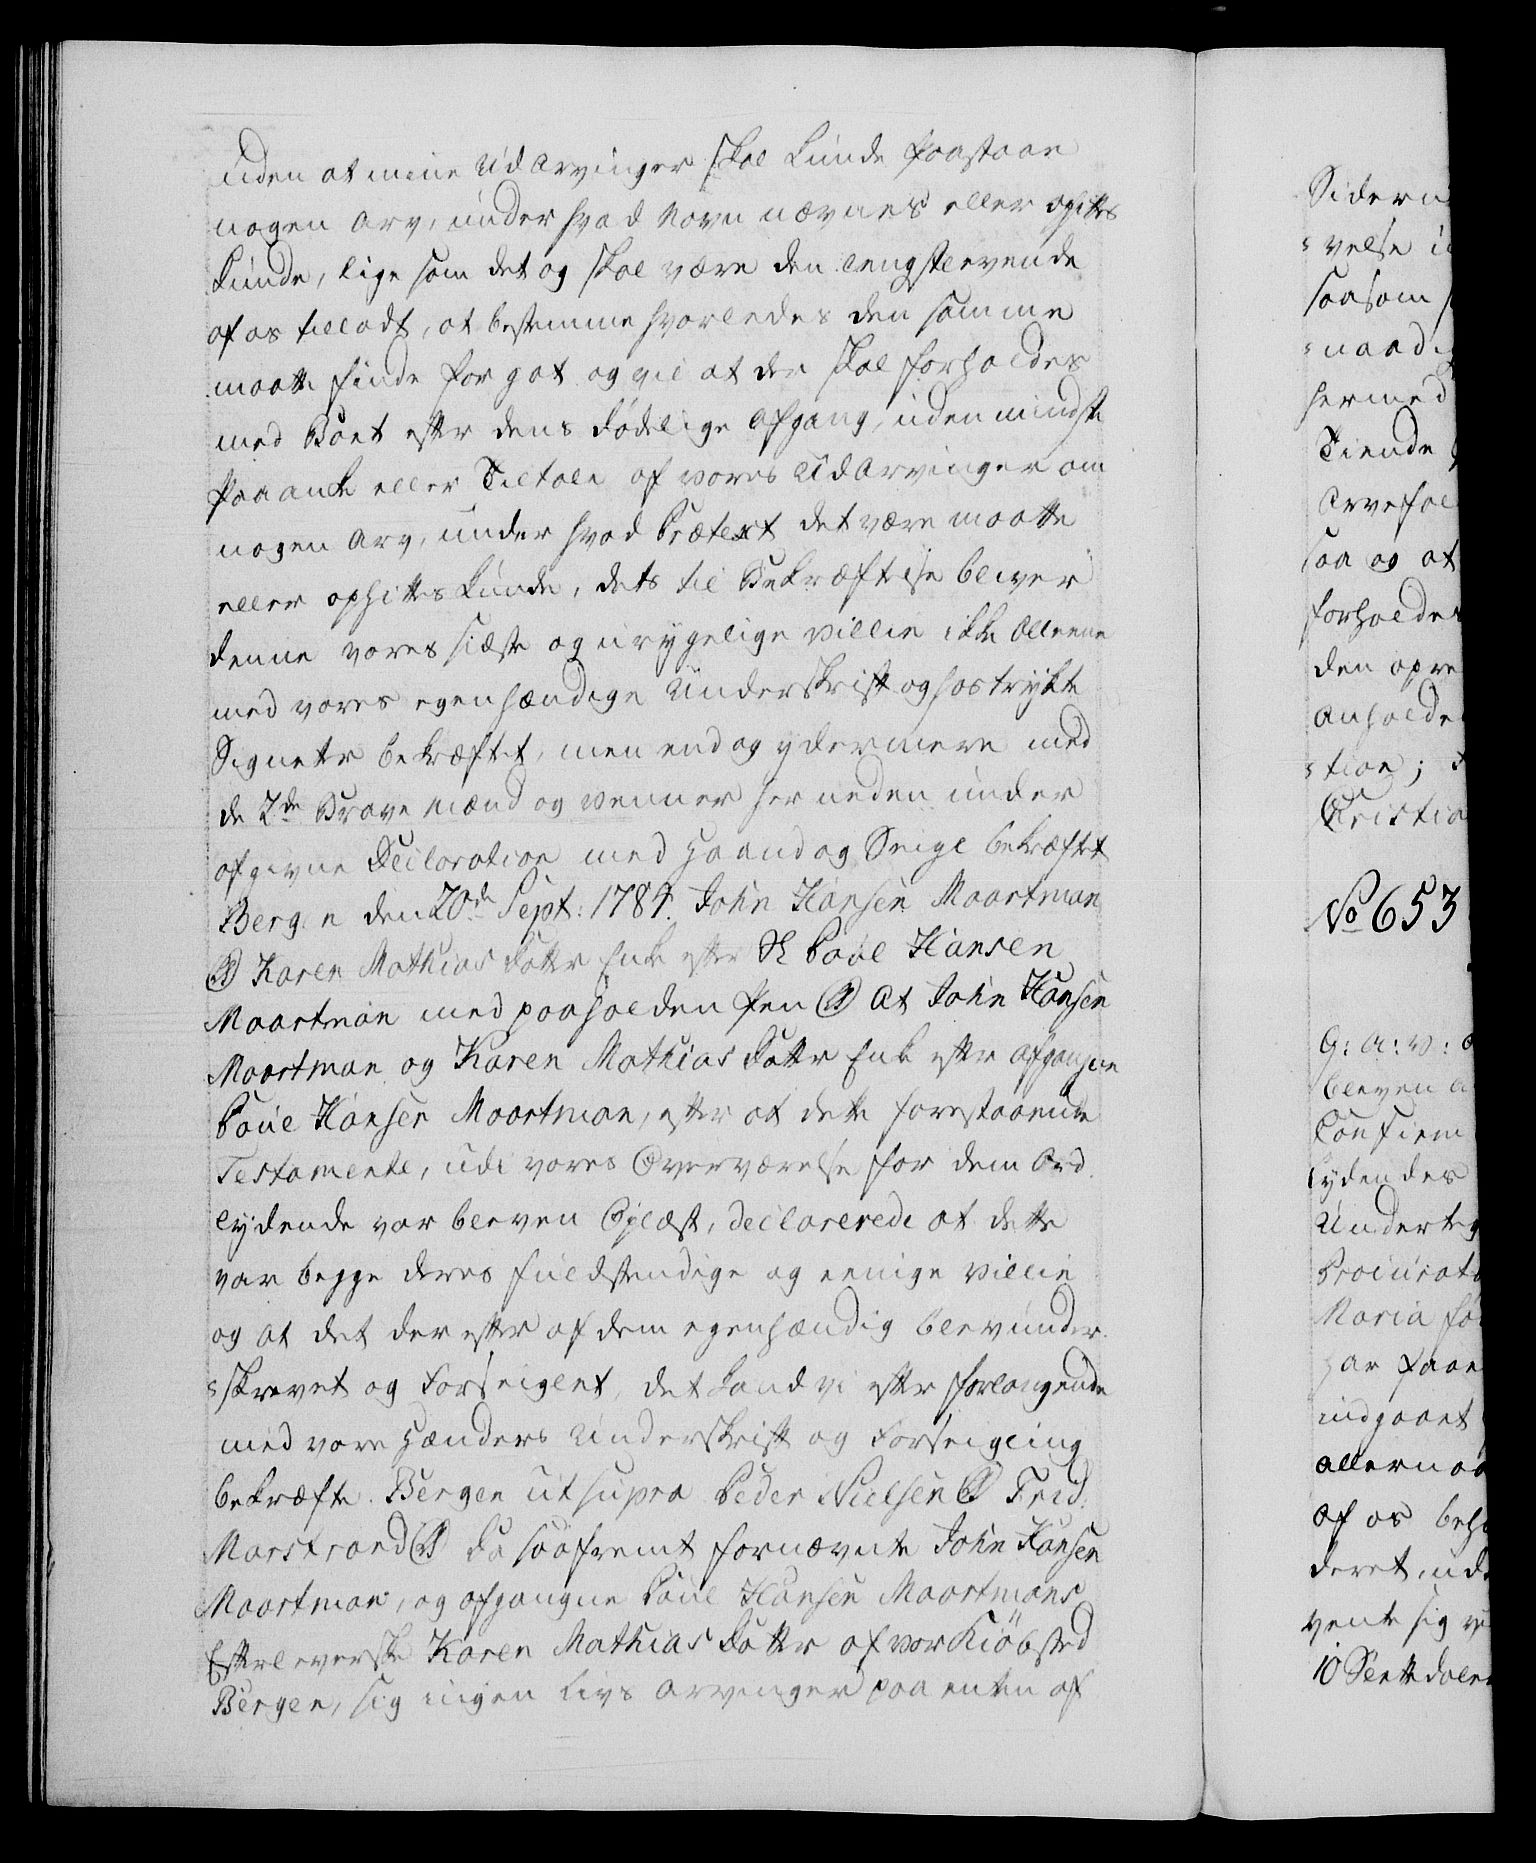 uden at mine Ud Arvinger skal kunde paastaae
nogen Arv, under hvad Navn nævnes eller ophittes
kunde, lige som det og skal være den længstlevende
af os tilladt, at bestemme hvorledes den samme
maatte finde for got og vil at der skal forholdes
med Boet efter dens dødelige Afgang, uden mindste
Paaanke eller Tiltale af vores Ud Arvinger om
nogen Arv, under hvad Prætext det være maatte
eller ophittes kunde, dets til Bekræftelse bliver
denne vores sidste og uryggelige Villie ikke Alleene
med vores egenhændige Underskrift og hostrykte
Signeter bekræftet, men endog ydermere med
de 2de Brave Mænd og Venner her neden under
afgivne Declaration med Haand og Seigl bekræftet
Bergen den 20de Sept: 1784. John Hansen Maartman
(LS) Karen Mathias Datter Enke efter Sl Povel Hansen
Maartman med paaholden Pen (LS) At John Hansen
Maartman og Karen Mathias Datter Enke efter afgangne
Povel Hansen Maartman, efter at dette forestaaende
Testamente, udi vores Overværelse for dem Ord
lydende var bleven Oplæst, declarerede at dette
var begge deres fuldstendige og eenige Villie
og at det der efter af dem egenhændig blev under
=skrevet og Forseiglet, det kand vi efter forlangende
med vore Hænders Underskrift og Forseigling
bekræfte. Bergen ut supra Peder Nielsen (LS) Frid:
Marstrand (LS) Da saafremt fornævnte John Hansen
Maartman, og afgangne Povel Hansen Maartmans
Efterleverske Karen Mathias Datter af vor Kiøbsted
Bergen, sig ingen Livs Arvinger paa enten af
Sidern
=velse i
saasom
=naadig
hermed
Tiende
Arvefal
saa og at
forholdes
den opre
anholde
=tion;
Christia
No 653
G: A: V:
bleven a
Confirm
lydendes
Underteg
Procurato
Maria fø
har faae
indgaaet
allernaa
af os beh
deret, ud
vente sig v
10 Slettedaler